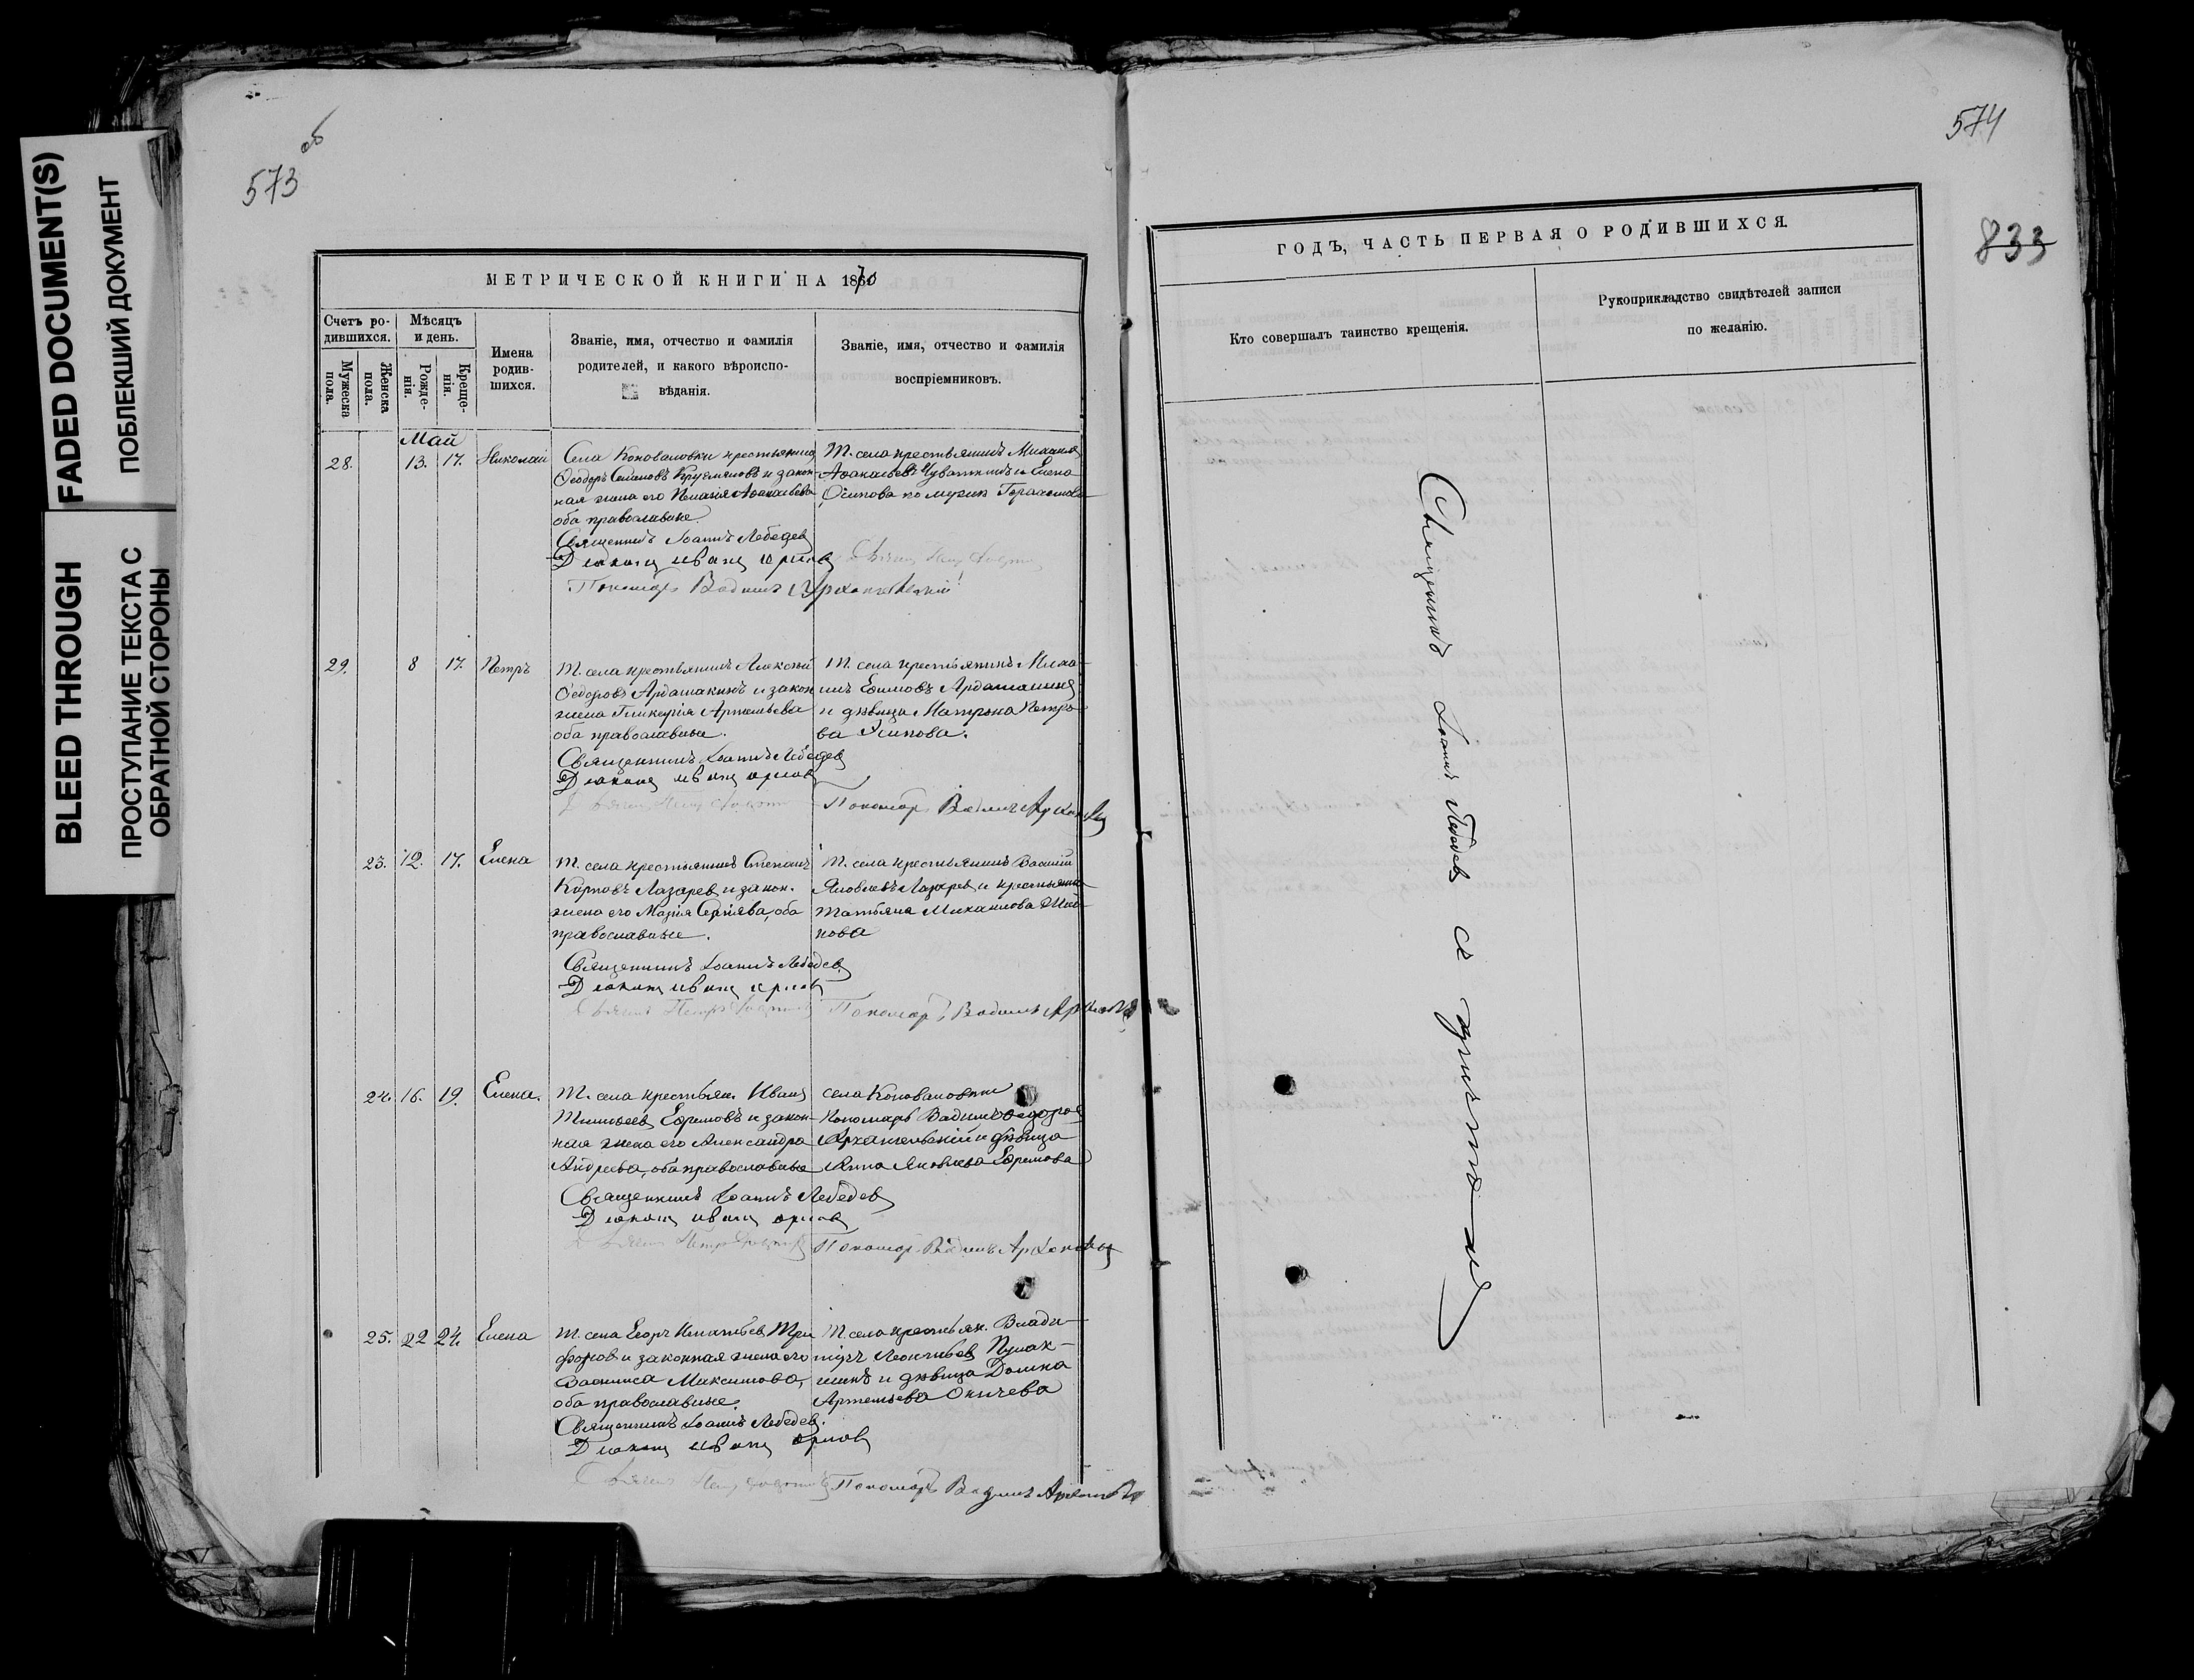 FADED DOCUMENT(S)
ПОБЛЕКШИЙ ДОКУМЕНТ
BLEED THROUGH
ПРОСТУПАНИЕ ТЕКСТА С
ОБРАТНОЙ СТОРОНЫ
573 об
МЕТРИЧЕСКОЙ КНИГИ НА 1870
Счетъ ро-
дившихся.
Мужеска
пола.
Женска
пола.
Мѣсяцъ
и день.
Рожде-
нія.
Креще-
нія.
Имена
родив-
шихся.
Званіе, имя, отчество и фамилія
родителей, и какого вѣроиспо-
вѣданія.
Званіе, имя, отчество и фамилія
воспріемниковъ.
Май
28. 13. 17. Николай
Села Коноваловки крестьянинъ
Ѳеодоръ Семеновъ и закон-
ная жена его Аѳанасьева
оба православные.
Священникъ Іоаннъ Лебедев
Диаконъ иванъ орлов
Пономарь Вадимъ Архангельскій
Т. села крестьянинъ Михаилъ
Аѳанасьевъ и Елена
Осипова по мужу
29. 8 17. Петръ
Т. села крестьянинъ Алексѣй
Ѳедоровъ Ардашакинъ и закон
жена Гликерія Артемьева
оба православные.
Священникъ Іоаннъ Лебедев
Диаконъ иванъ орлов
Т. села крестьянинъ Миха-
илъ Ефимовъ
и дѣвица Матрона Петро-
ва Осипова.
Пономарь Вадимъ
23. 12. 17. Елена
Т. села крестьянинъ Степанъ
Карповъ Лазарев и закон.
жена его Марія Сергіева, оба
православные.
Священникъ Іоаннъ Лебедев
Диаконъ иванъ орлов
Т. села крестьянинъ Василій
Яковлевъ Лазарев и крестьянка
Татьяна Михаилова
нова
Пономарь Вадимъ
24. 16. 19. Елена.
Т. села крестьян. Иванъ
Ефремовъ и закон-
ная жена его Александра
Андреева, оба православные
Священникъ Іоаннъ Лебедев
Диаконъ иванъ орлов
села Коноваловки
Пономарь Вадимъ Ѳедоров
Архангельскій и дѣвица
Анна Яковлева Ефремова
Пономарь Вадимъ
25. 22 24. Елена
Т. села Егоръ Игнатьев Три
фонов и законная жена его
Василиса Максимова,
оба православные.
Священникъ Іоаннъ Лебедев.
Диаконъ иванъ орлов
Т. села крестьян. Влади-
міръ Леонтьев
и дѣвица Домна
Артемьева
Пономарь Вадимъ
574
833
ГОДЪ, ЧАСТЬ ПЕРВАЯ О РОДИВШИХСЯ.
Кто совершалъ таинство крещенія.
Рукоприкладство свидѣтелей записи
по желанію.
Священникъ Іоаннъ Лебедев съ причтомъ